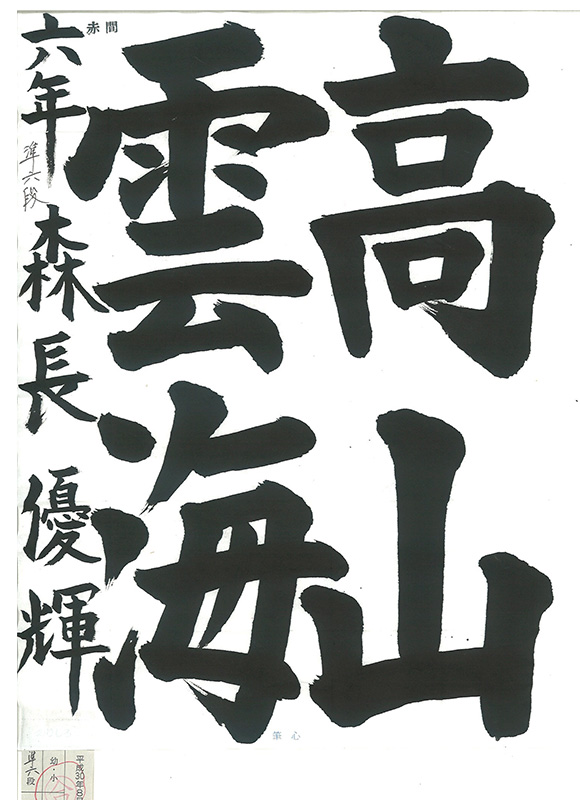 高山
雲海
赤間
六年 森長優輝
準六段
筆心
平成30年8
幼・小
準六段